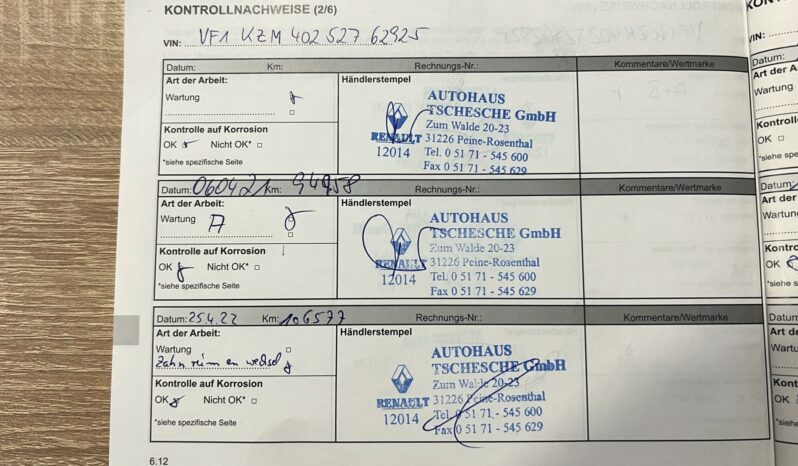 KONTROLLNACHWEISE (2/6)
VIN: VF1 KZM 402 527 62925
Datum: Km: Rechnungs-Nr.: Kommentare/Wertmarke
Art der Arbeit: Händlerstempel
Wartung
Kontrolle auf Korrosion
OK Nicht OK*
*siehe spezifische Seite
AUTOHAUS
TSCHESCHE GmbH
Zum Walde 20-23
RENAULT 31226 Peine-Rosenthal
12014 Tel. 0 51 71 - 545 600
Fax 0 51 71 - 545 629
Datum: 060421 Km: 94958 Rechnungs-Nr.: Kommentare/Wertmarke
Art der Arbeit: Händlerstempel
Wartung A
Kontrolle auf Korrosion
OK Nicht OK*
*siehe spezifische Seite
AUTOHAUS
TSCHESCHE GmbH
Zum Walde 20-23
RENAULT 31226 Peine-Rosenthal
12014 Tel. 0 51 71 - 545 600
Fax 0 51 71 - 545 629
Datum: 25.4.22 Km: 106577 Rechnungs-Nr.: Kommentare/Wertmarke
Art der Arbeit: Händlerstempel
Wartung
Zahnriemen wechsel
Kontrolle auf Korrosion
OK Nicht OK*
*siehe spezifische Seite
AUTOHAUS
TSCHESCHE GmbH
Zum Walde 20-23
RENAULT 31226 Peine-Rosenthal
12014 Tel. 0 51 71 - 545 600
Fax 0 51 71 - 545 629
6.12
VIN:
Datum:
Art der
Wartung
Kontrol
OK
*siehe spe
Datum:
Art der
Wartung
Kontro
OK
*siehe s
Datum
Art de
Wartu
Kont
OK
*sieh